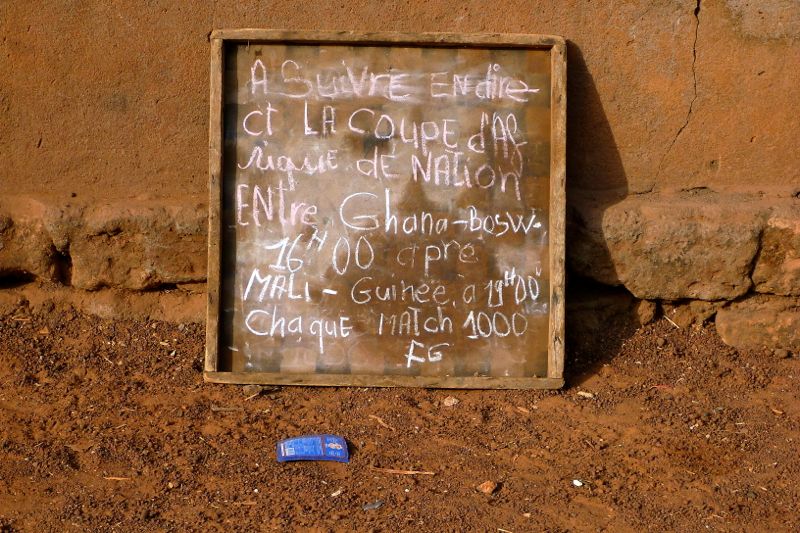 A SUiVRE EN dire
ct LA COUPE d'Af
rique de NATion
ENtre Ghana-Bosw.
16H00 apre
MALI - Guinée, à 19H00
Chaque MATch 1000
FG